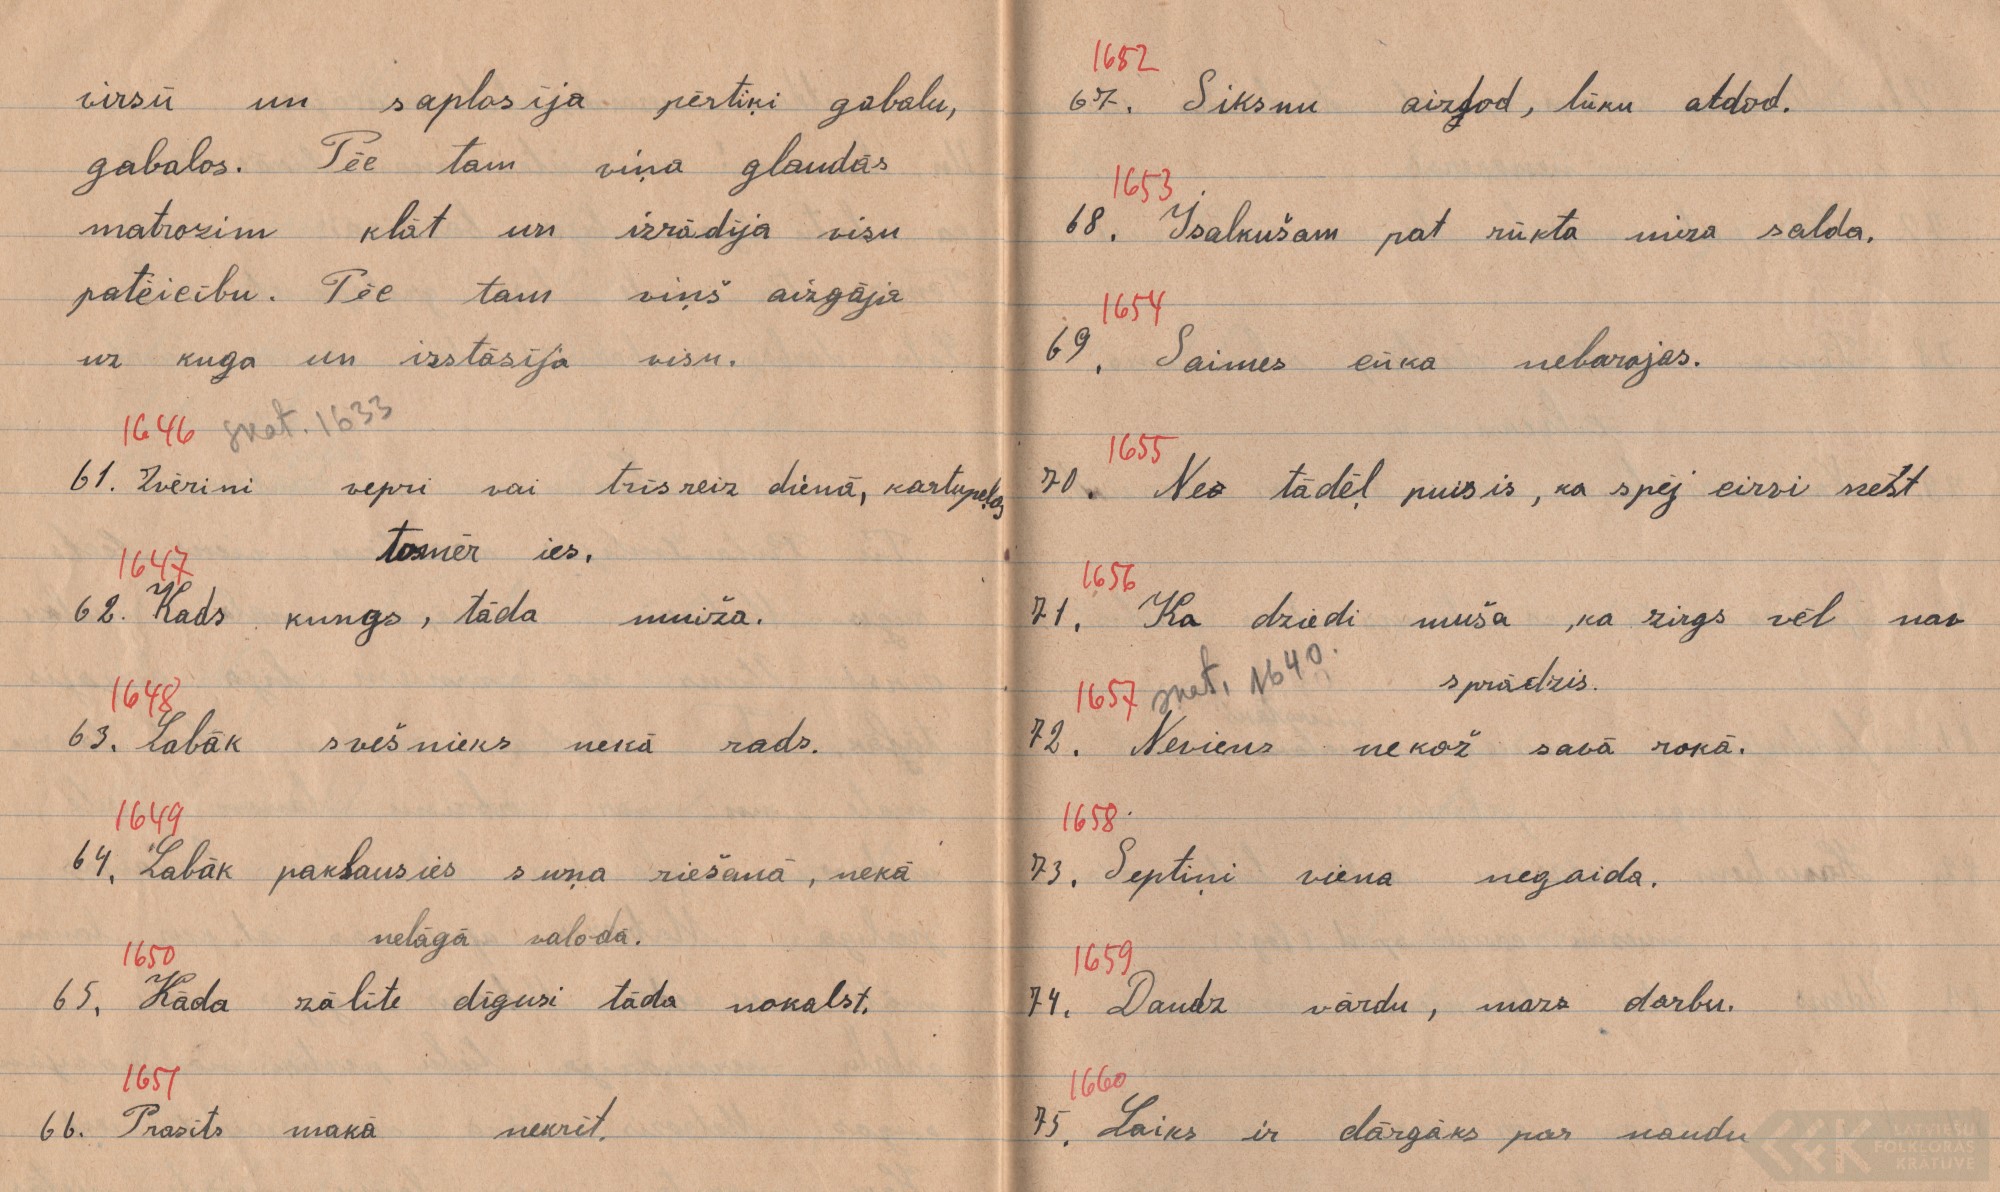 virsū un saplosīja pērtiķi gabalu,
gabalos. Pēc tam viņa glaudās
matrozim klāt un izrādīja visu
patēicību. Pēc tam viņš aizgāja
uz kuga un izstāsīja visu.
1646 skat. 1633
61. Zvērini vepri vai trīsreiz dienā, kartupeļos
tomēr ies.
1647
62. Kads kungs, tāda muiža.
1648
63. Labāk svešnieks nekā rads.
1649
64. Labāk paklausies suņa riešanā, nekā
nelāgā valodā.
1650
65. Kāda zālīte dīgusi tāda nokalst.
1651
66. Prasīts makā nekrīt.
1652
67. Siksnu aizdod, lūku atdod.
1653
68. Isalkušam pat rūkta miza salda.
1654
69. Saimes cūka nebarojas.
1655
70. Nes tādēļ puisis, ka spēj cirvi nēst
1656
71. Ka dziedi muša, ka zirgs vēl nav
sprādzis.
1657 skat. 1640.
72. Neviens nekož savā rokā.
1658
73. Septiņi viena negaida.
1659
74. Daudz vārdu, mazs darbu.
1660
75. Laiks ir dārgāks par naudu
LATVIEŠU
FOLKLORAS
KRĀTUVE